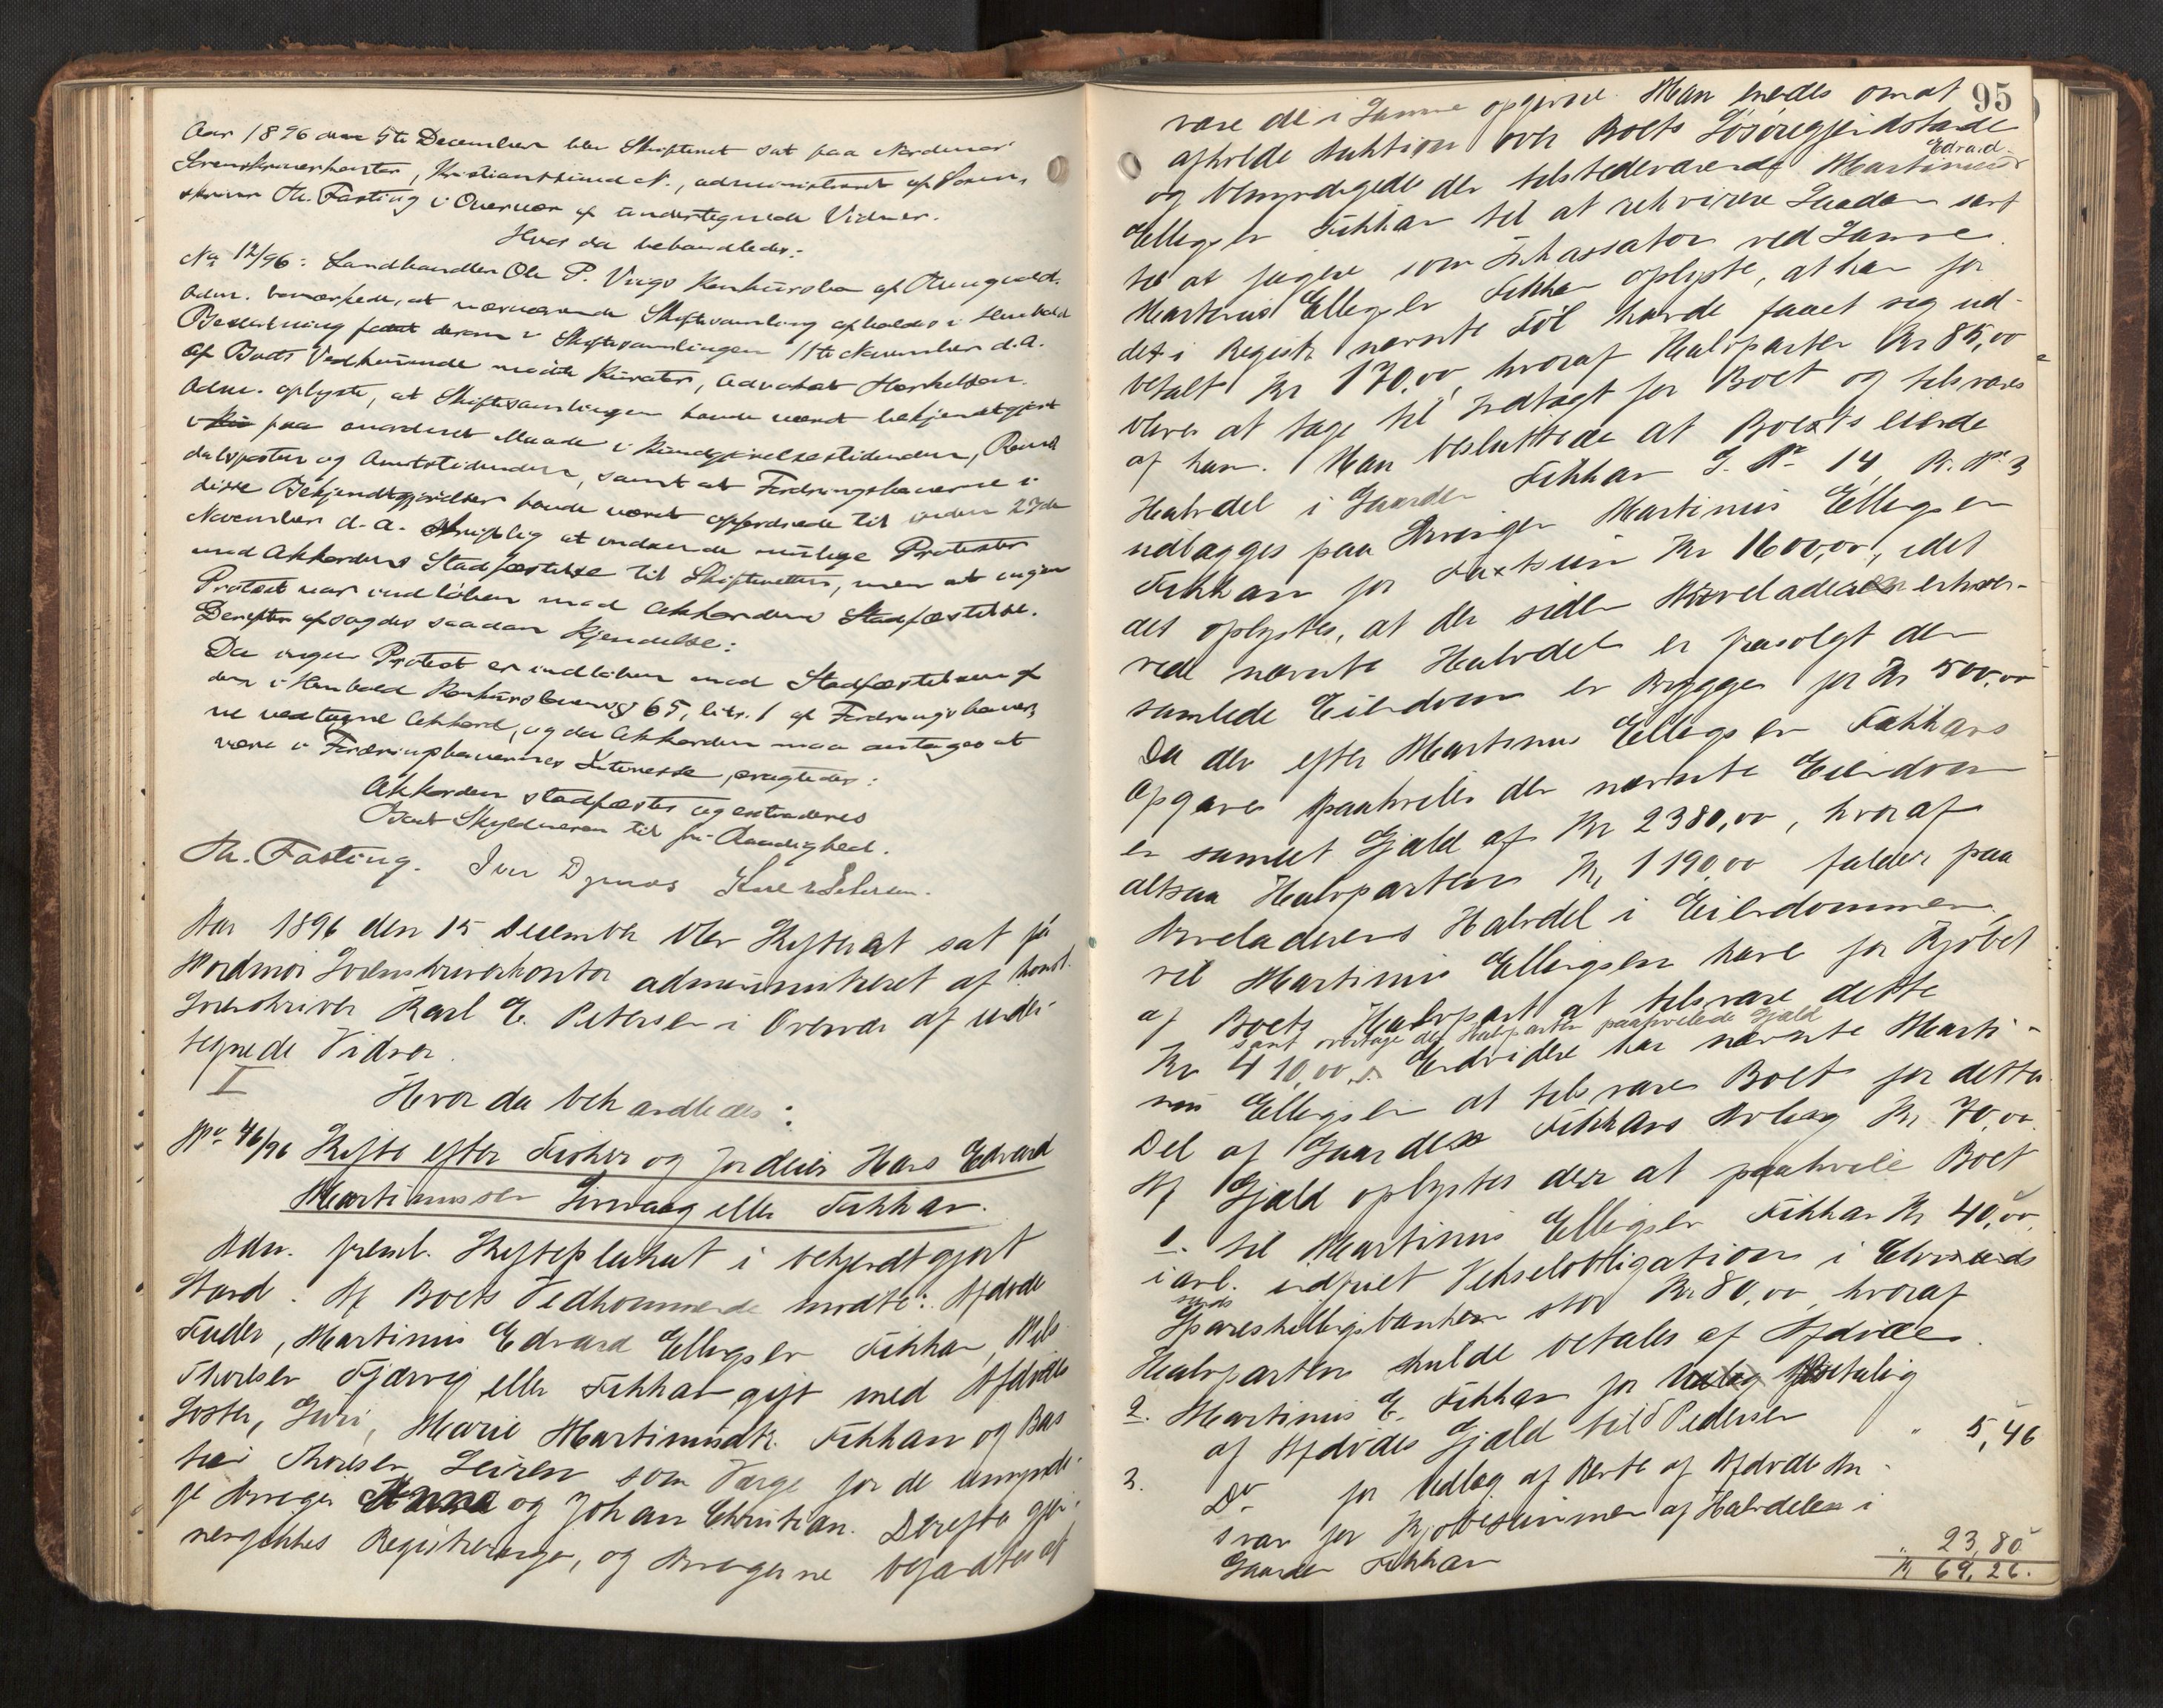 Aar 1896 den 5te December blev Skifteret sat paa Nordmør
Sorenskriverkontor, Kristianssund N., administreret af Soren-
skriver Th. Fasting i Overvær af undertegnede Vidner.
Hvor da behandledes:
No 12/96: Landhandler Ole P. Viigs Konkursbo af
Adm. bemærkede, at nærværende Skiftesamling afholdes i Henhold
Beslutning fattet derom i Skiftesamlingen 11te November d.A.
Af Boets Vedkommende mødte Kurator, Advokat
Adm. oplyste, at Skiftesamlingen havde været bekjendtgjort
paa anordnet Maade i Kundgjørelsestidenden, Roms
dalsposten og Amtstidenden, samt at Fordringshaverne i
disse Bekjendtgjørelser havde været opfordrede til inden 27de
November d.A. skriftlig at indsende mulige Protester
mod Akkordens Stadfæstelse til Skifteretten, men at ingen
Protest var indløben mod Akkordens Stadfæstelse.
Derefter afsagdes saadan Kjendelse:
Da ingen Protest er indløben mod Stadfæstelsen af
den i Henhold Konkurslovens § 65, litr. 1 af Fordringshaver-
ne vedtagne Akkord, og da Akkorden maa antages at
være i Fordringshavernes Interesse, eragtedes:
Akkorden stadfæstes og extraderes
Boet Skyldneren til fri Raadighed.
Th. Fasting. Iver Dyrnæs
Aar 1896 den 15 December blev Skifteret sat på
Nordmør Sorenskriverkontor administreret af konst.
Sorenskriver Karl E. Petersen i Overvær af under-
tegnede Vidner.
I
Hvor da behandledes:
No 46/96 Skifte efter Fisker og Jordeier Hans Edvard
Martinussen eller Fikkan.
Adm. freml. Skifteplakat i bekjendtgjort
Stand. Af Boets Vedkommende mødte: Afdødes
Fader, Martinus Edvard Ellingsen Fikkan, Nils
Thorlsen eller Fikkan gift med Afdødes
Søster, Guri, Marie Martinusdtr. Fikkan og Bas
tian Thorlsen Leiren som Værge for de umyndi-
ge Arvinger Anna og Johan Christian. Derefter gjen-
nemgikkes Registreringen, og Arvingerne bejaedes at
95
være de i Samme opgivne. Man enedes om at
afholde Auktion over Boets Løsøregjenstande
Edvard
og bemyndigede den tilstedeværende Martinus
Ellingsen Fikkan til at rekvirere Saadan samt
til at fugere som Inkassator ved Samme.
Martinus Ellingsen Fikkan oplyste, at han for
det i Registr. nævnte Føl havde faaet sig ud-
betalt Kr 170,00, hvoraf Halvparten Kr 85,00
bliver at tage til Indtægt for Boet og tilsvares
af ham. Man besluttede at Boets eiende
Halvdel i Gaarden Fikkan G. No 14 B. No 3
udlægges paa Arvingen Martinus Ellingsen
Fikkan for Taxtsum Kr 1600,00, idet
det oplystes, at der siden Arveladeren erhver-
vede nævnte Halvdel er frasolgt den
samlede Eiendom er Brygge for Kr 500,00
Da der efter Martinus Ellingsen Fikkans
Opgave paahviler den nævnte Eiendom
en samlet Gjæld af Kr 2380,00, hvoraf
altsaa Halvparten Kr 1190,00 falder paa
Arveladerens Halvdel i Eiendommen,
vil Martinus Ellingsen have for Kjøbet
af Boets Halvpart at tilsvare dette
samt overtage den Halvparten paahvilende Gjæld
Kr 410,00. Endvidere har nævnte Marti-
nus Ellingsen at tilsvare Boet for dettes
Del af Gaarden Fikkans Avling Kr. 70,00.
Af Gjæld oplystes der at paahvile Boet
1. til Martinus Ellingsen Fikkan Kr 40,00
i anl. indfriet Vekselobligation i
Spareskillingsbanken stor Kr. 80,00, hvoraf
Halvparten skulde betales af Afdøde.
2. Martinus E. Fikkan for Betaling
af Afdødes Gjæld til Pedersen " 5,46
3. Do for Udlæg af Rente af Afdødes An-
svar for Kjøbesummen af Halvdelen i
Gaarden Fikkan " 23,80
Kr 69,26.